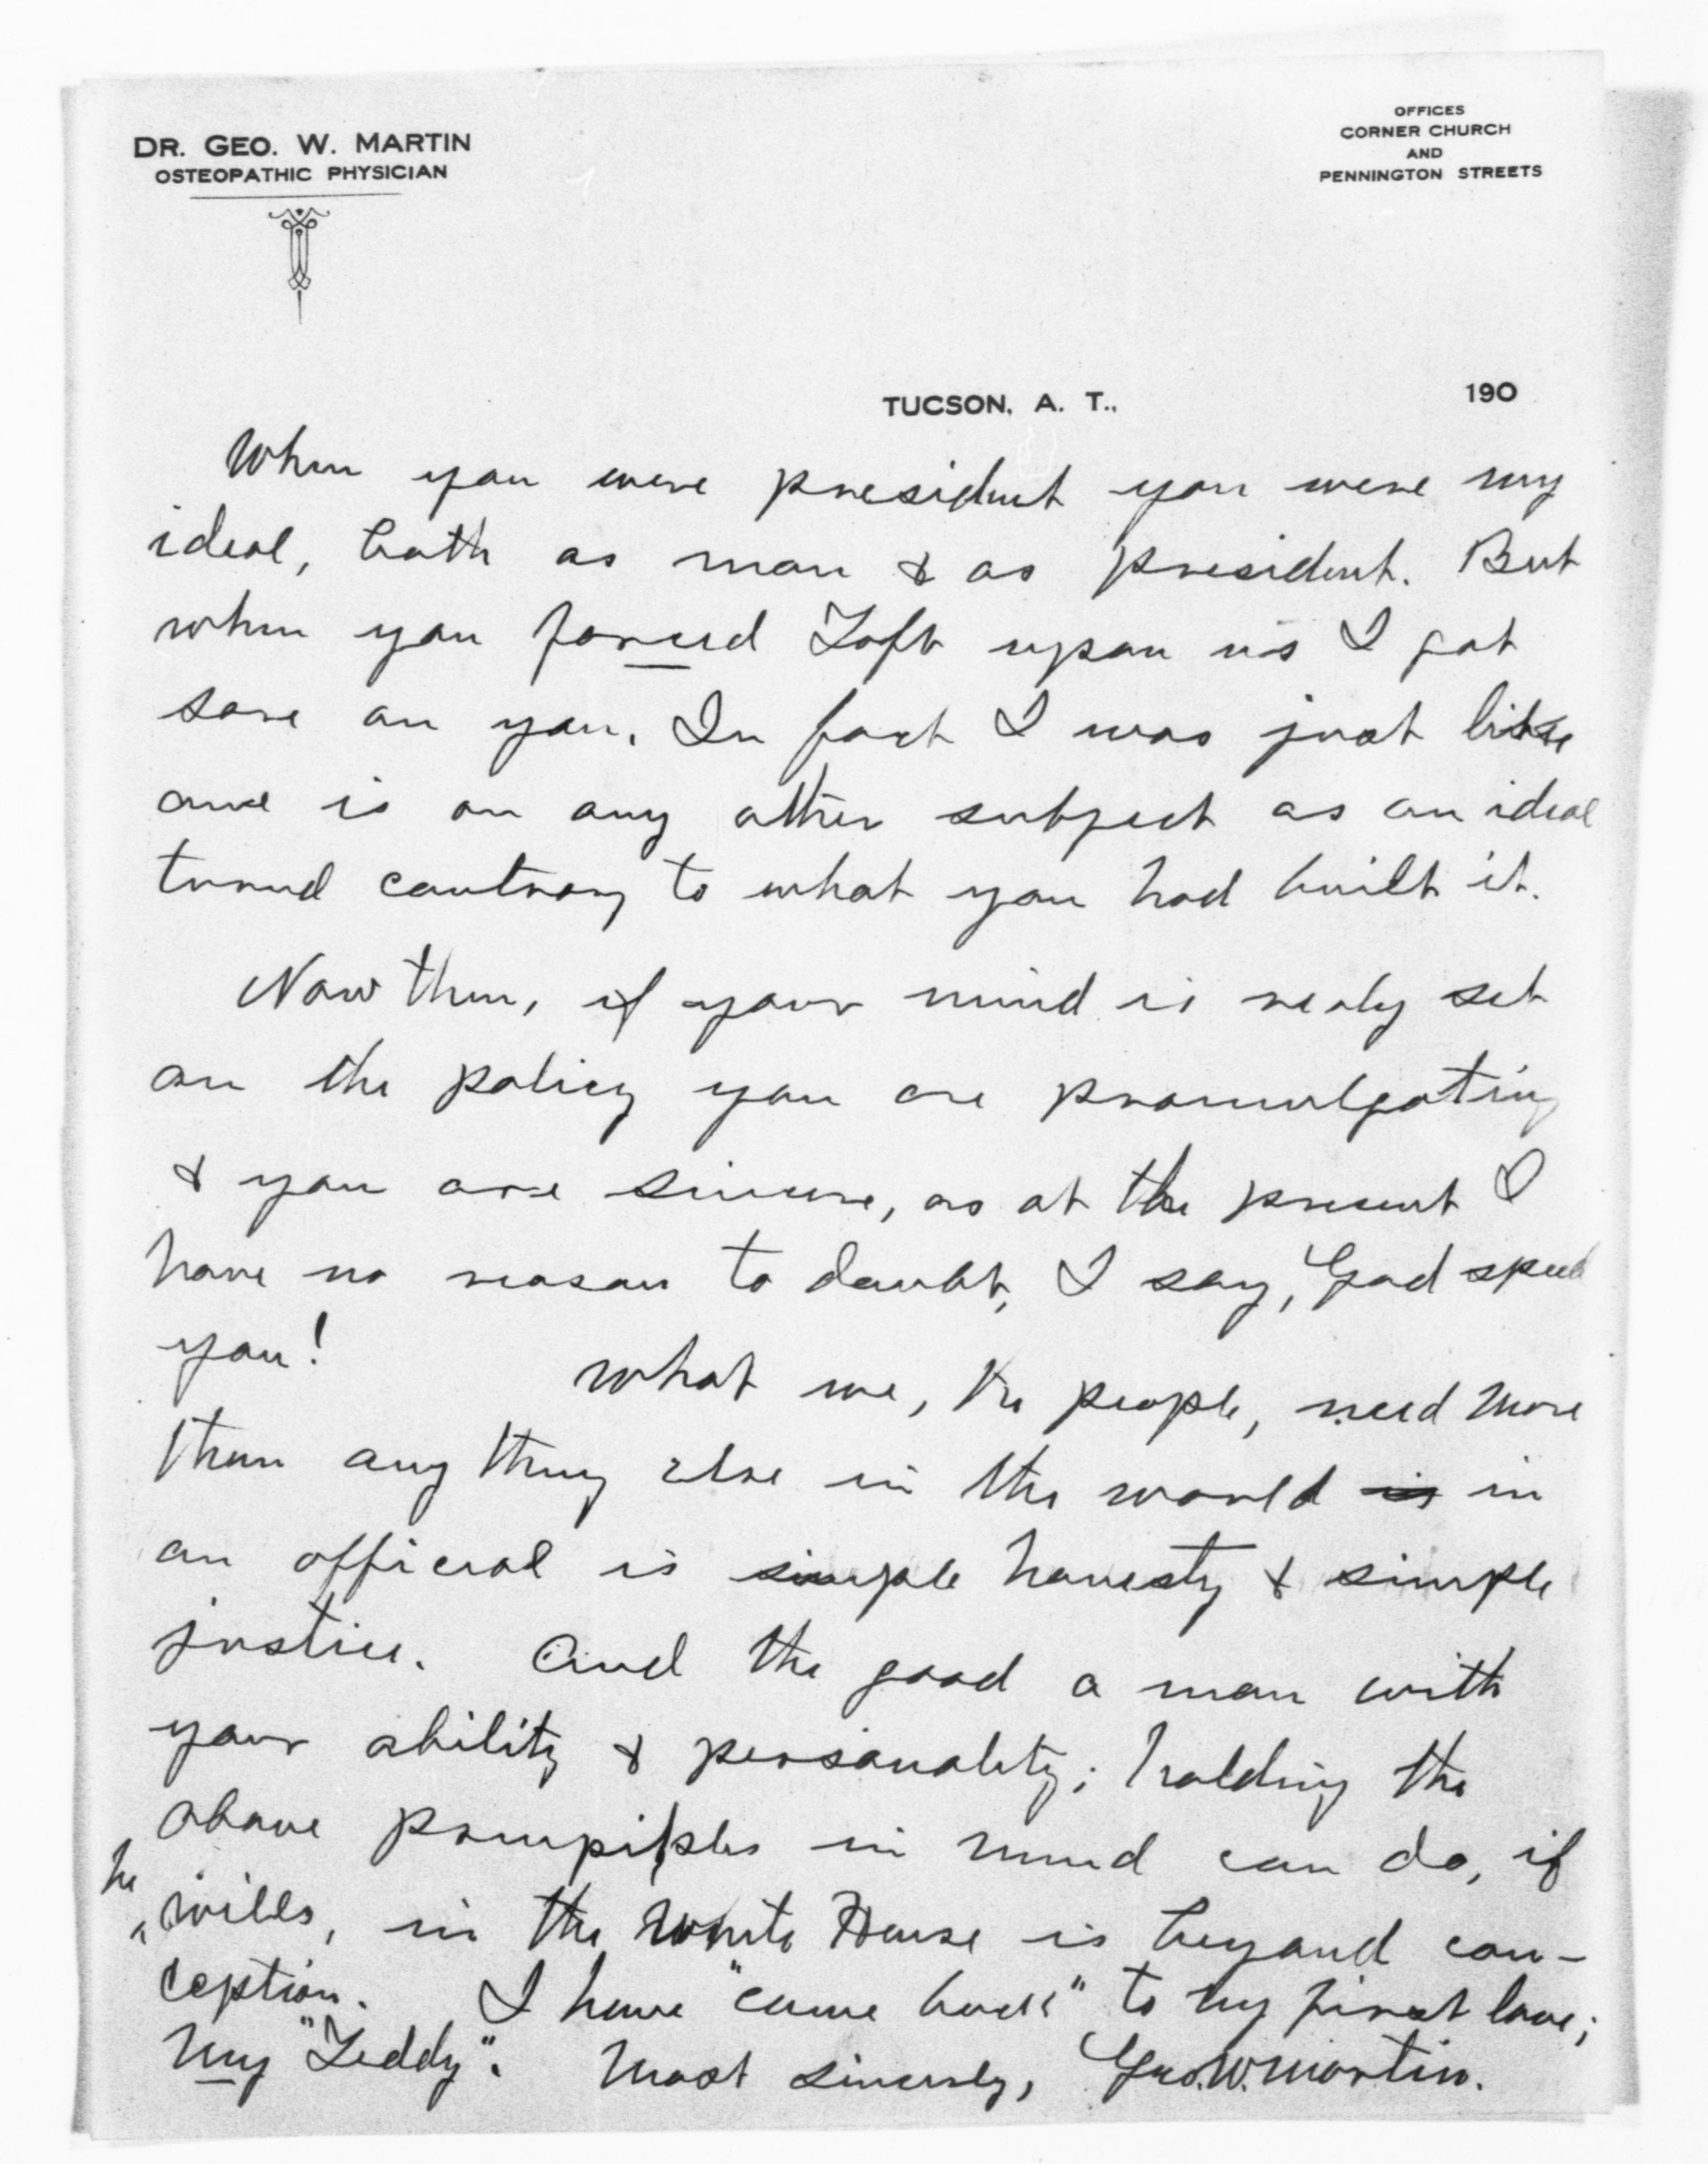 DR. GEO. W. MARTIN
OSTEOPATHIC PHYSICIAN
OFFICES
CORNER CHURCH
AND
PENNINGTON STREETS
TUCSON, A. T., 190
When you were president you were my
ideal, both as man & as president. But
when you forced Taft upon us I got
sore on you. In fact I was just like
one is on any other subject as an ideal
turned contrary to what you had built it.
Now then, if your mind is realy set
on the policy you are promulgating
& you are sincere, as at the present I
have no reason to doubt, I say, God speed
you! What we, the people, need more
than any thing else in the world is in
an official is simple honesty & simple
justice. And the good a man with
your ability & personality; holding the
above in mind can do, if
he
wills, in the White House is beyond con-
ception. I have "come back" to my first love;
my "Teddy". Most sincerely, Geo. W. Martin.